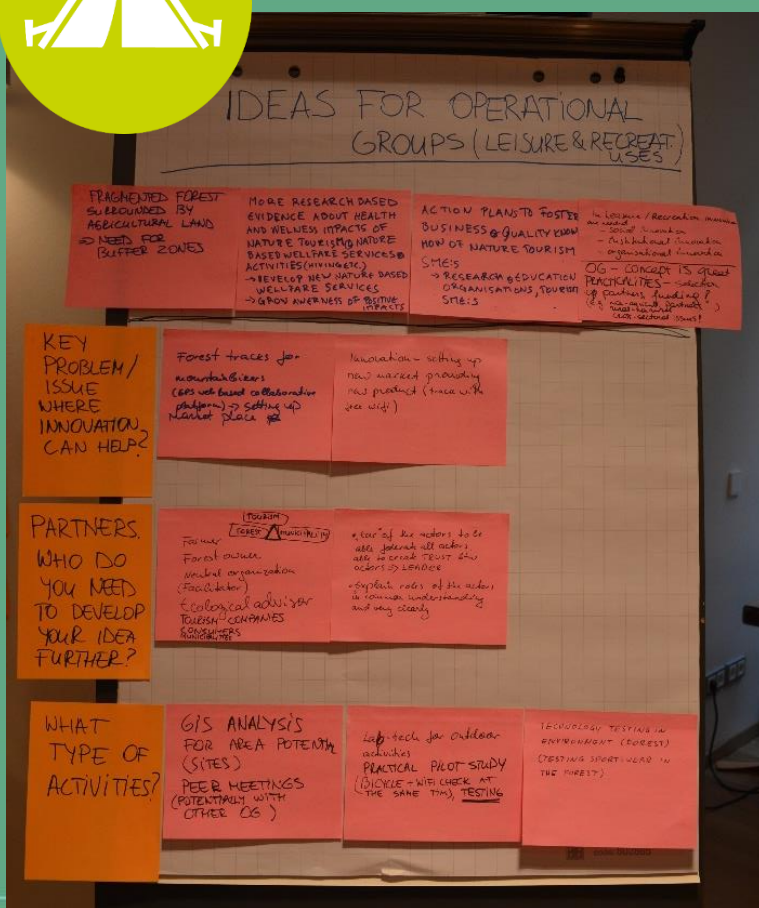 IDEAS FOR OPERATIONAL
GROUPS (LEISURE & RECREAT.
USES)
FRAGMENTED FOREST
SURROUNDED BY
AGRICULTURAL LAND
⇒ NEED FOR
BUFFER ZONES
MORE RESEARCH BASED
EVIDENCE ABOUT HEALTH
AND WELNESS IMPACTS OF
NATURE TOURISM & NATURE
BASED WELLFARE SERVICES &
ACTIVITIES (HIVING ETC.)
→ DEVELOP NEW NATURE BASED
WELLFARE SERVICES
→ GROW AWERNESS OF POSITIVE
IMPACTS
ACTION PLANS TO FOSTER
BUSINESS & QUALITY KNOW
HOW OF NATURE TOURISM
SME:S
→ RESEARCH & EDUCATION
ORGANISATIONS, TOURISM
SME:S
In Leisure / Recreation
- social innovation
- institutional innovation
- organisational innovation
OG - CONCEPT IS great
PRACTICALITIES - selection
of partners funding?
cross-sectoral issues!
KEY
PROBLEM/
ISSUE
WHERE
INNOVATION
CAN HELP?
Forest traces for
mountainbikers
(GPS web based collaborative
platform) → setting up
Market place
Innovation - setting up
new market providing
new product (trace with
free wifi)
PARTNERS.
WHO DO
YOU NEED
TO DEVELOP
YOUR IDEA
FURTHER?
TOURISM
FOREST MUNICIPALITY
Farmer
Forest owner
Neutral organization
(Facilitator)
Ecological advisor
TOURISM COMPANIES
CONSUMERS
MUNICIPALITIES
of the actors to be
able federate all actors
able to create TRUST btw
actors ⇒ LEADER
- Explain roles of the actors
in common understanding
and very clearly
WHAT
TYPE OF
ACTIVITIES?
GIS ANALYSIS
FOR AREA POTENTIAL
(SITES)
PEER MEETINGS
(POTENTIALLY WITH
OTHER OG)
Lab-tech for outdoor
activities
PRACTICAL PILOT STUDY
(BICYCLE + WIFI CHECK AT
THE SAME TIM), TESTING
TECHNOLOGY TESTING IN
ENVIRONMENT (FOREST)
(TESTING SPORTWEAR IN
THE FOREST)